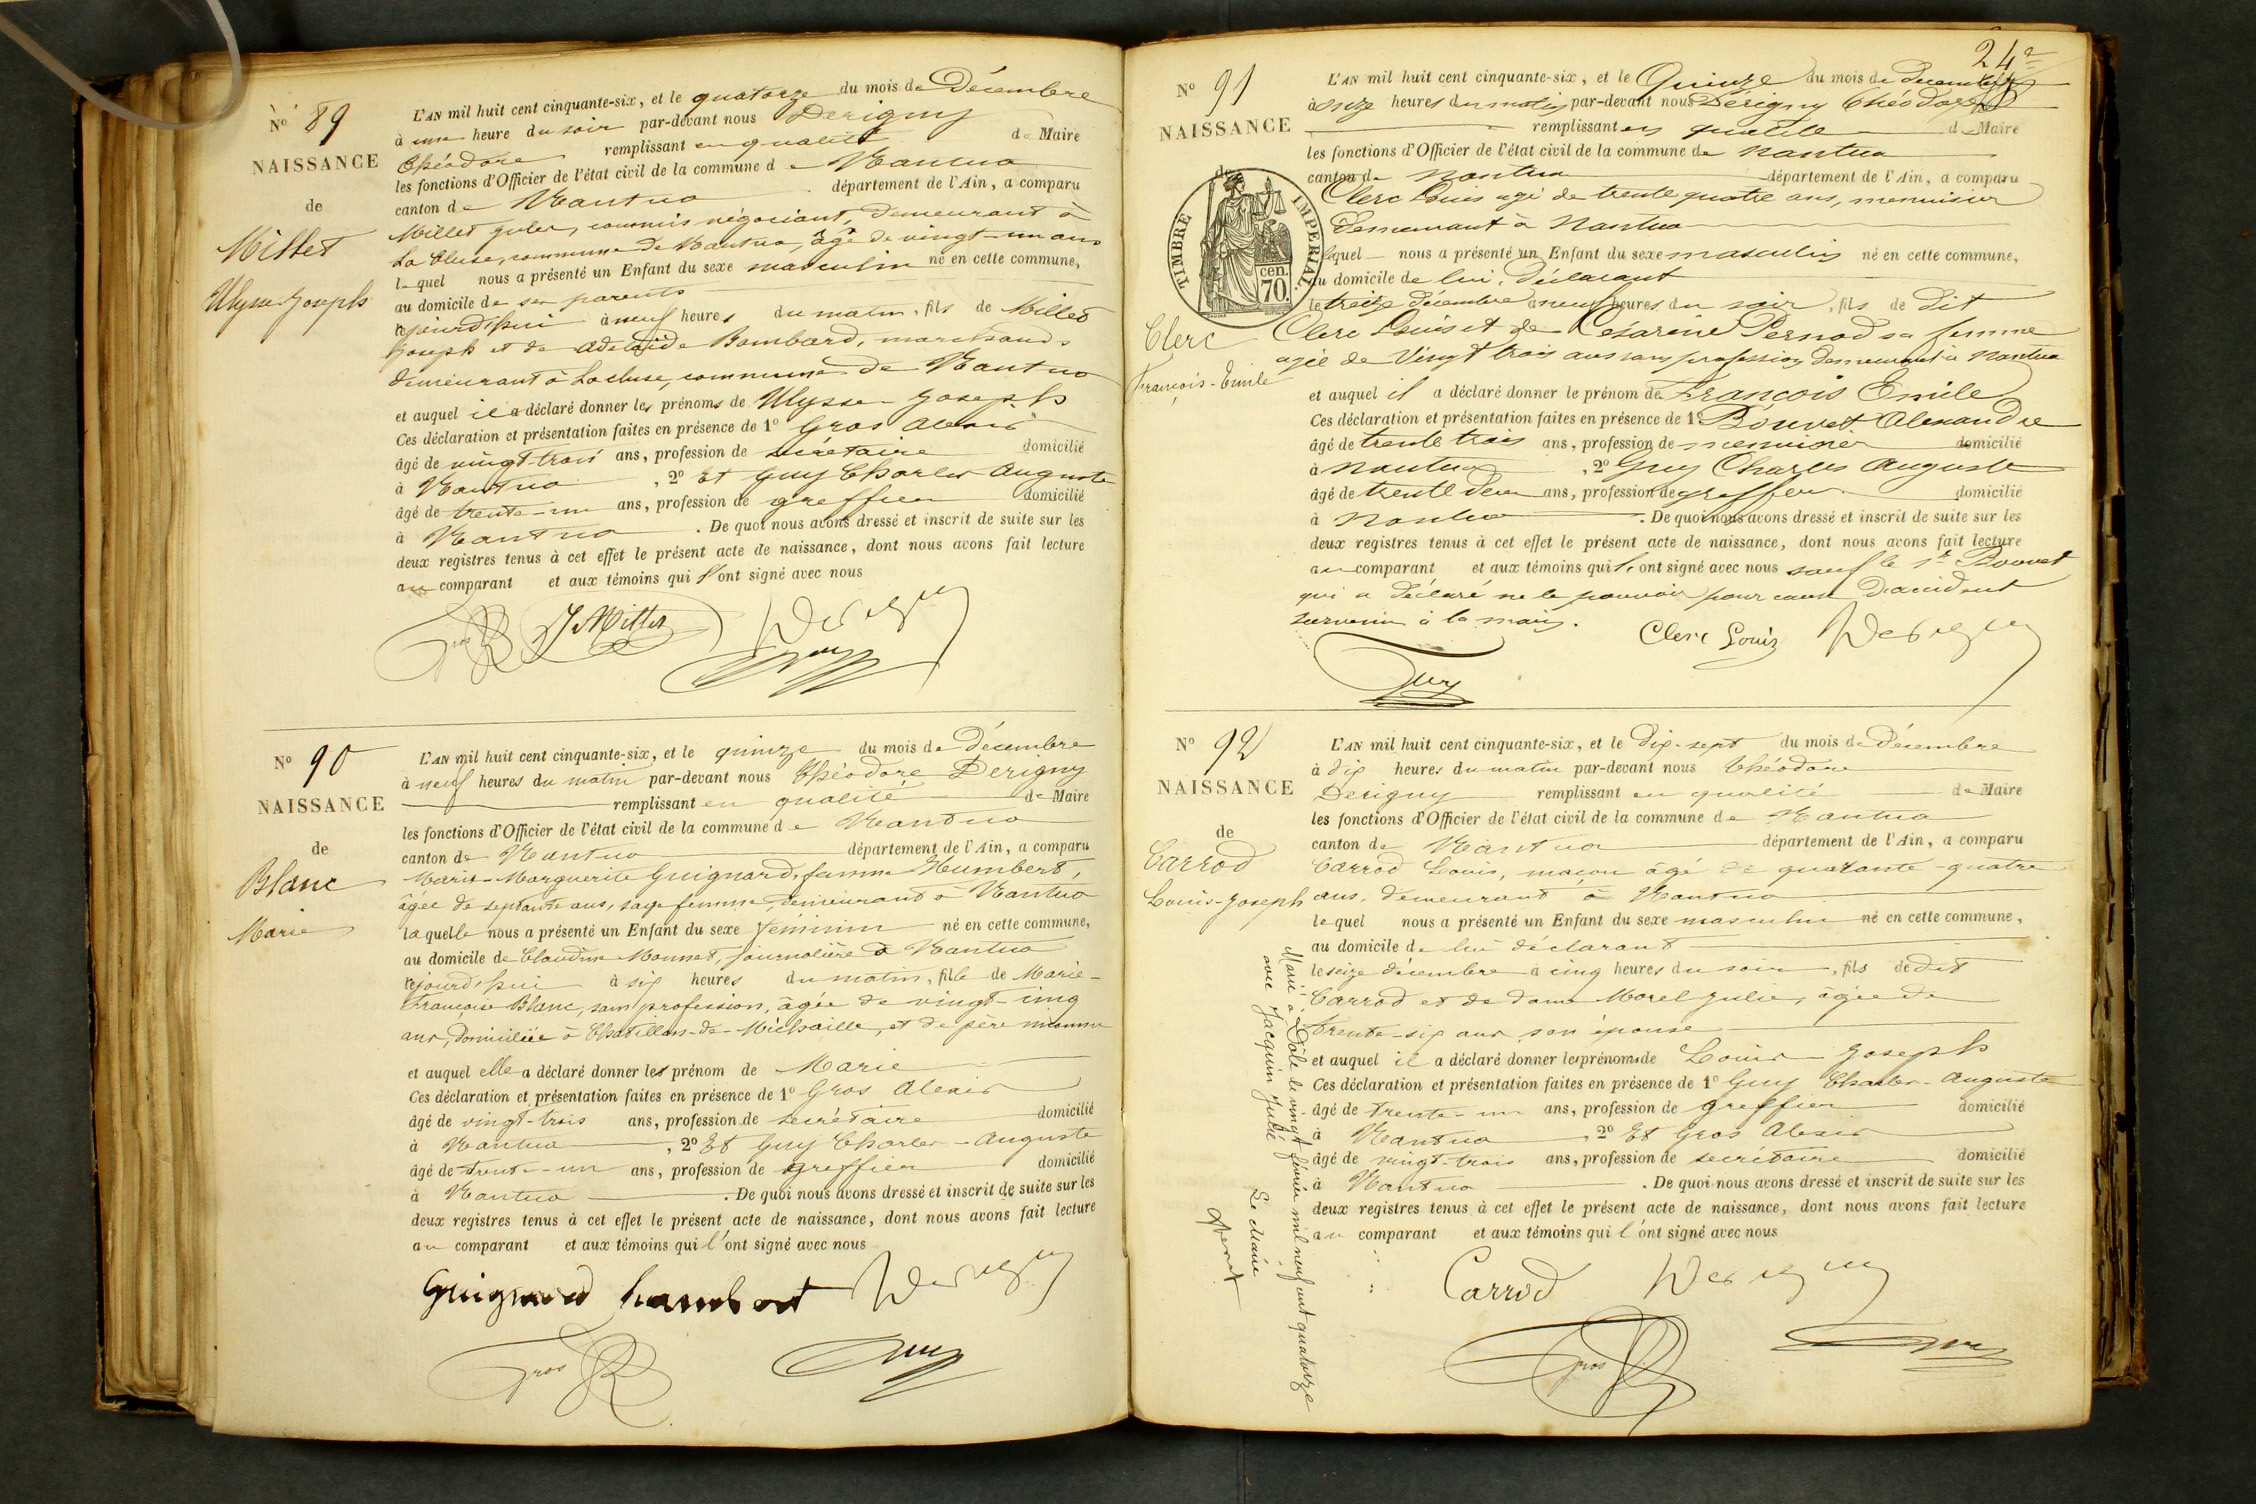 N° 89
NAISSANCE
de
Millet
Ulysse-Joseph
L'AN mil huit cent cinquante-six, et le quatorze du mois de Décembre
à une heure du soir par-devant nous Derigny
Théodore remplissant en qualité de Maire
les fonctions d'Officier de l'état civil de la commune de Nantua
canton de Nantua département de l'Ain, a comparu
Millet Jules, commis négociant, demeurant à
La Cluse, commune de Nantua, âgé de vingt-un ans
lequel nous a présenté un Enfant du sexe masculin né en cette commune,
au domicile de ses parents
cejourd'hui à neuf heures du matin, fils de Millet
Joseph et de Adélaïde Bombard, marchands
demeurant à Lacluse, commune de Nantua
et auquel il a déclaré donner les prénoms de Ulysse-Joseph
Ces déclaration et présentation faites en présence de 1° Gros Alexis
âgé de vingt-trois ans, profession de secrétaire domicilié
à Nantua, 2° Et Guy Charles Auguste
âgé de trente-un ans, profession de greffier domicilié
à Nantua. De quoi nous avons dressé et inscrit de suite sur les
deux registres tenus à cet effet le présent acte de naissance, dont nous avons fait lecture
au comparant et aux témoins qui l'ont signé avec nous
Gros J Millet Derigny
Guy
N° 90
NAISSANCE
de
Blanc
Marie
L'AN mil huit cent cinquante-six, et le quinze du mois de Décembre
à neuf heures du matin par-devant nous Théodore Derigny
remplissant en qualité de Maire
les fonctions d'Officier de l'état civil de la commune de Nantua
canton de Nantua département de l'Ain, a comparu
Marie-Marguerite Guignard, femme Humbert,
âgée de septante ans, sage femme, demeurant à Nantua
laquelle nous a présenté un Enfant du sexe féminin né en cette commune,
au domicile de Claudine Monnet, journalière à Nantua
cejourd'hui à six heures du matin, fille de Marie-
Françoise Blanc, sans profession, âgée de vingt-cinq
ans, domiciliée à Chatillon-de-Michaille, et de père inconnu
et auquel elle a déclaré donner les prénom de Marie
Ces déclaration et présentation faites en présence de 1° Gros Alexis
âgé de vingt-trois ans, profession de secrétaire domicilié
à Nantua, 2° Et Guy Charles-Auguste
âgé de trente-un ans, profession de greffier domicilié
à Nantua. De quoi nous avons dressé et inscrit de suite sur les
deux registres tenus à cet effet le présent acte de naissance, dont nous avons fait lecture
au comparant et aux témoins qui l'ont signé avec nous
Guignard hambert Derigny
Gros Guy
24
N° 91
NAISSANCE
de
TIMBRE IMPERIAL
cen. 70.
Clerc
François-Emile
L'AN mil huit cent cinquante-six, et le Quinze du mois de Décembre
à onze heures du matin par-devant nous Derigny Théodore
remplissant en qualité de Maire
les fonctions d'Officier de l'état civil de la commune de Nantua
canton de Nantua département de l'Ain, a comparu
Clerc Louis agé de trente quatre ans, menuisier
Demeurant à Nantua
lequel nous a présenté un Enfant du sexe masculin né en cette commune,
au domicile de lui, déclarant
le treize décembre à neuf heures du soir, fils de dit
Clerc Louis et de Césarine Pernod sa femme
agée de Vingt trois ans sans profession demeurant à Nantua
et auquel il a déclaré donner le prénom de François Emile
Ces déclaration et présentation faites en présence de 1° Bouvet Alexandre
âgé de trente trois ans, profession de menuisier domicilié
à Nantua, 2° Guy Charles Auguste
âgé de trente deux ans, profession de greffier domicilié
à Nantua. De quoi nous avons dressé et inscrit de suite sur les
deux registres tenus à cet effet le présent acte de naissance, dont nous avons fait lecture
au comparant et aux témoins qui l'ont signé avec nous sauf le Sr Bouvet
qui a déclaré ne le pouvoir pour cause d'accident
survenu à la main.
Clerc Louis Derigny
Guy
N° 92
NAISSANCE
de
Carrod
Louis-Joseph
L'AN mil huit cent cinquante-six, et le dix-sept du mois de Décembre
à dix heures du matin par-devant nous Théodore
Derigny remplissant en qualité de Maire
les fonctions d'Officier de l'état civil de la commune de Nantua
canton de Nantua département de l'Ain, a comparu
Carrod Louis, maçon âgé de quarante-quatre
ans, demeurant à Nantua
lequel nous a présenté un Enfant du sexe masculin né en cette commune,
au domicile de lui déclarant
le seize décembre à cinq heures du soir, fils de dit
Carrod et de dame Morel Julie, âgée de
trente-six ans son épouse
et auquel il a déclaré donner les prénoms de Louis-Joseph
Ces déclaration et présentation faites en présence de 1° Guy Charles-Auguste
âgé de trente-un ans, profession de greffier domicilié
à Nantua, 2° Et Gros Alexis
âgé de vingt-trois ans, profession de secrétaire domicilié
à Nantua. De quoi nous avons dressé et inscrit de suite sur les
deux registres tenus à cet effet le présent acte de naissance, dont nous avons fait lecture
au comparant et aux témoins qui l'ont signé avec nous
Carrod Derigny
Gros Guy
Marié à Dôle le vingt février mil neuf cent quatorze
avec Jacquin Julie
Le Maire